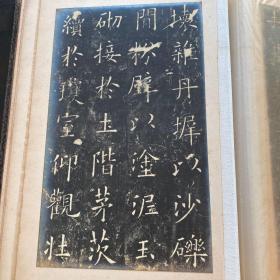 壞雜丹墀以沙礫
間粉壁以塗渥玉
砌接於土階茅茨
續於瓊室仰觀壯